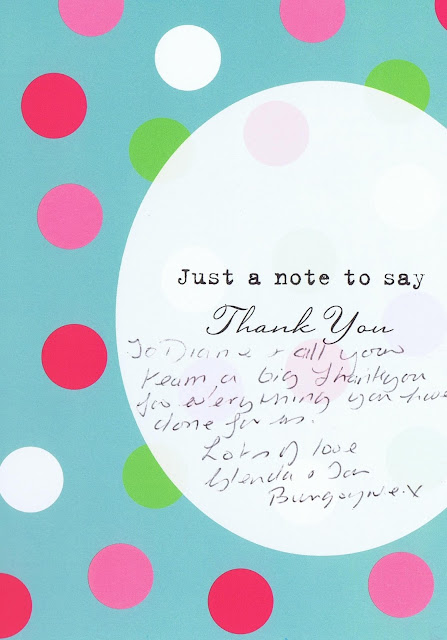 Just a note to say
Thank You
To Diane + all your
team a big thankyou
for everything you have
done for us.
Lots of love
Glenda & Ian
Burgoyne. X